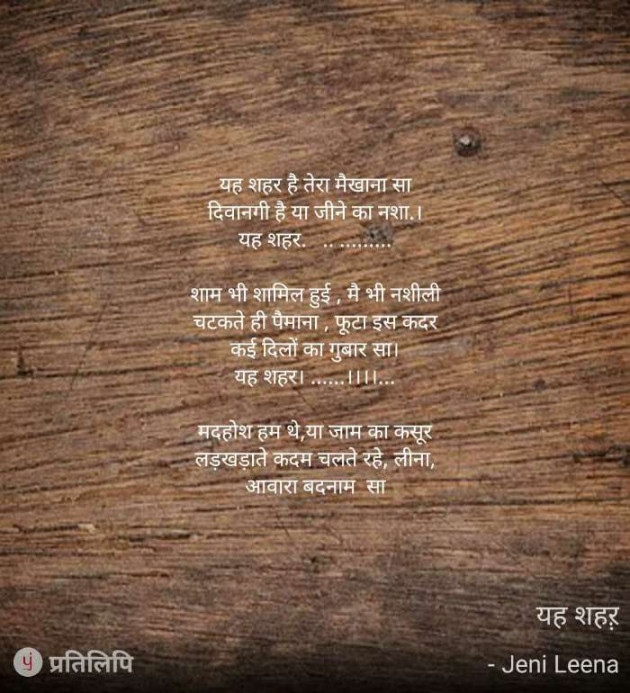 यह शहर है तेरा मैखाना सा
दिवानगी है या जीने का नशा.।
यह शहर.   .. .........
शाम भी शामिल हुई , मै भी नशीली
चटकते ही पैमाना , फूटा इस कदर
कई दिलों का गुबार सा।
यह शहर। ......।।।।...
मदहोश हम थे,या जाम का कसूर
लड़खड़ाते कदम चलते रहे, लीना,
आवारा बदनाम  सा
यह शहऱ
प्रतिलिपि
- Jeni Leena